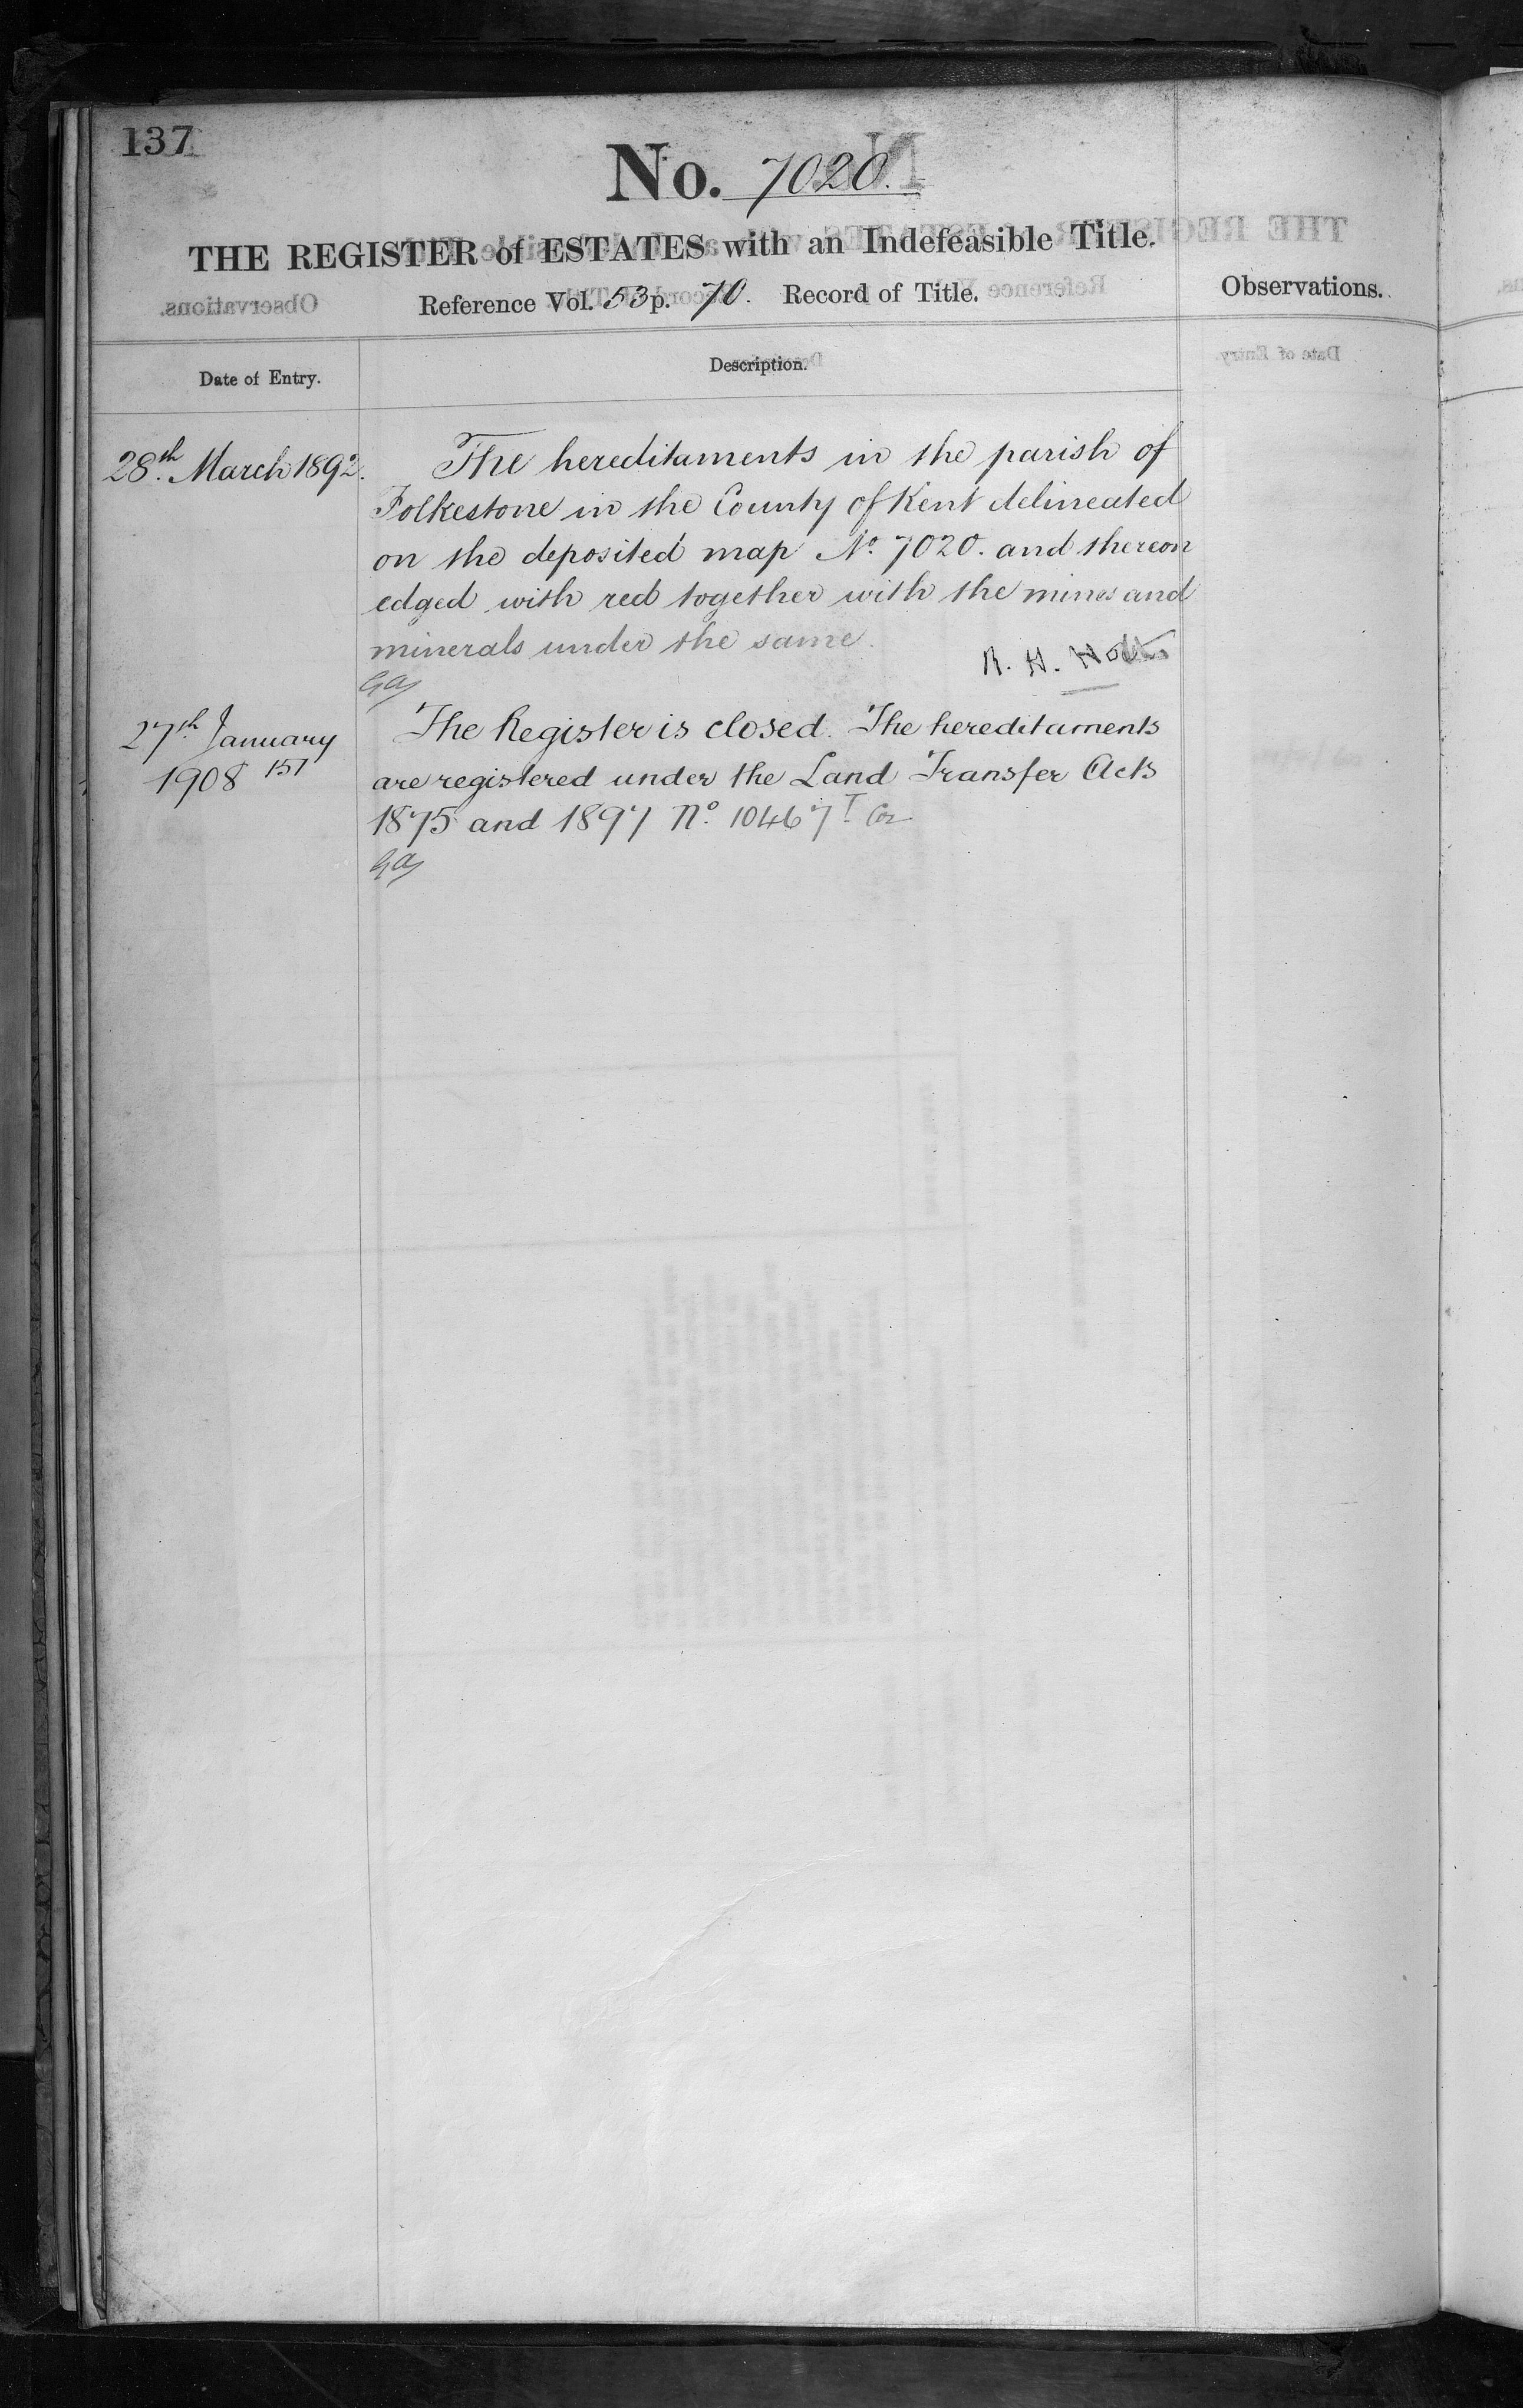 137
No. 7020.
THE REGISTER of ESTATES with an Indefeasible Title.
Reference Vol. 53 p. 70. Record of Title.
Observations.
Date of Entry.
Description.
28th. March 1892.
The hereditaments in the parish of
Folkestone in the County of Kent delineated
on the deposited map No. 7020. and thereon
edged with red together with the mines and
minerals under the same.
R. H. Holt
27th January
1908 151
The Register is closed. The hereditaments
are registered under the Land Transfer Acts
1875 and 1897 No. 10467